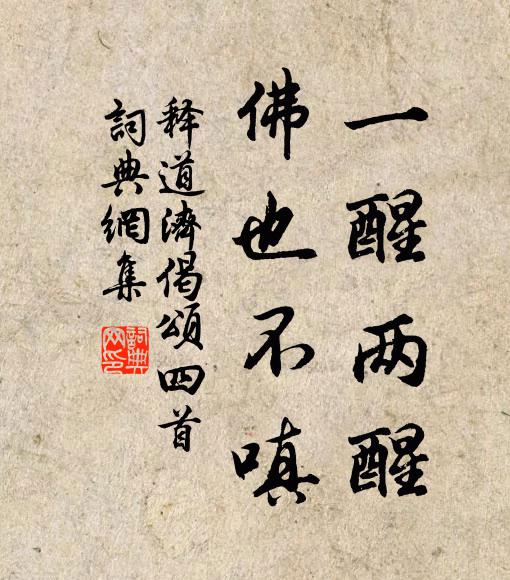 一醒两醒
佛也不嗔
释道濟偈頌四首
詞典網集
詞典
网印